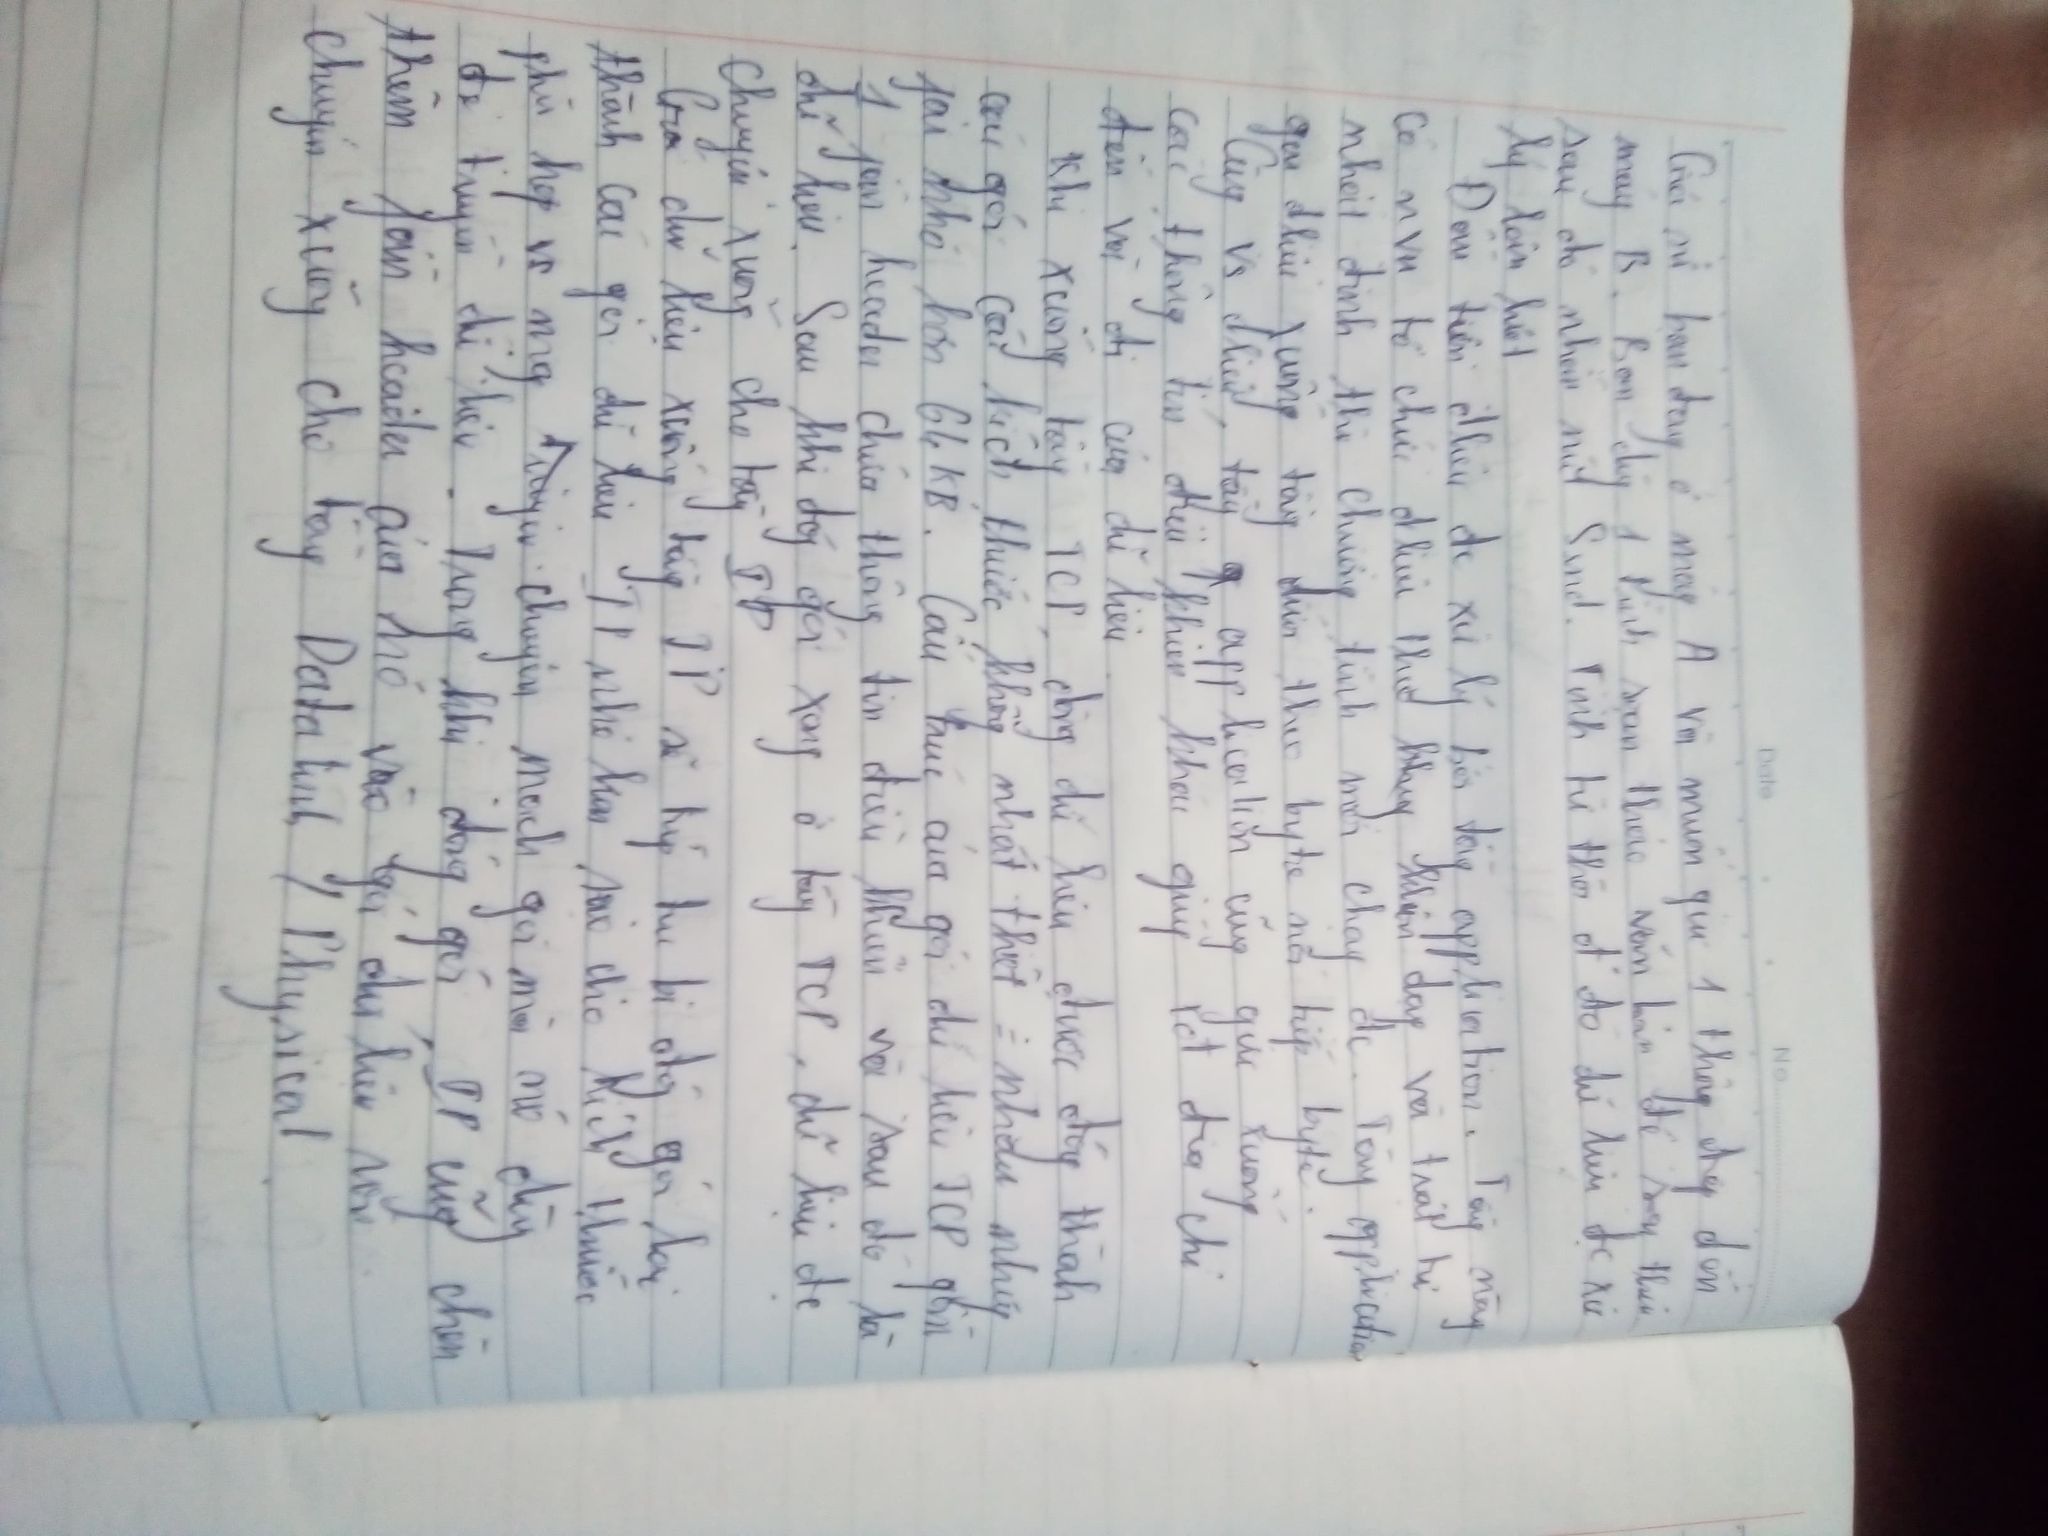 Date No
Giả sử bạn đang ở máy A và muốn gửi 1 thông điệp đến
máy B. Bạn dùng 1 trình soạn thảo văn bản để soạn thư
sau đó nhấn nút Send. Tính từ thời đ đó dữ liệu đc xử
lý lần lượt
Đầu tiên dliệu đc xử lý bởi tầng application. Tầng này
có nvu tổ chức dliệu theo khuôn dạng và trật tự
nhất định thì chương trình mới chạy đc. Tầng application
gửi dliệu xuống tầng dưới theo byte nối tiếp byte.
Cùng vs dliệu, tầng application cũng gửi xuống
các thông tin điều khiển khác giúp xđ địa chỉ
đến và đi của dữ liệu
Khi xuống tầng TCP, dòng dữ liệu được đóng thành
các gói có kích thước không nhất thiết = nhau nhưng
fải nhỏ hơn 64KB. Cấu trúc của gói dữ liệu TCP gồm
1 fần header chứa thông tin điều khiển và sau đó là
dữ liệu. Sau khi đóng gói xong ở tầng TCP, dữ liệu đc
chuyển xuống cho tầng IP
Gói dữ liệu xuống tầng IP sẽ tiếp tục bị đóng gói lại
thành các gói dữ liệu IP nhỏ hơn sao cho kích thước
phù hợp vs mạng chuyển mạch gói mà nó dùng
để truyền dữ liệu. Trong khi đóng gói, IP cũng chèn
thêm fần header của nó vào gói dữ liệu rồi
chuyển xuống cho tầng Datalink / Physical.